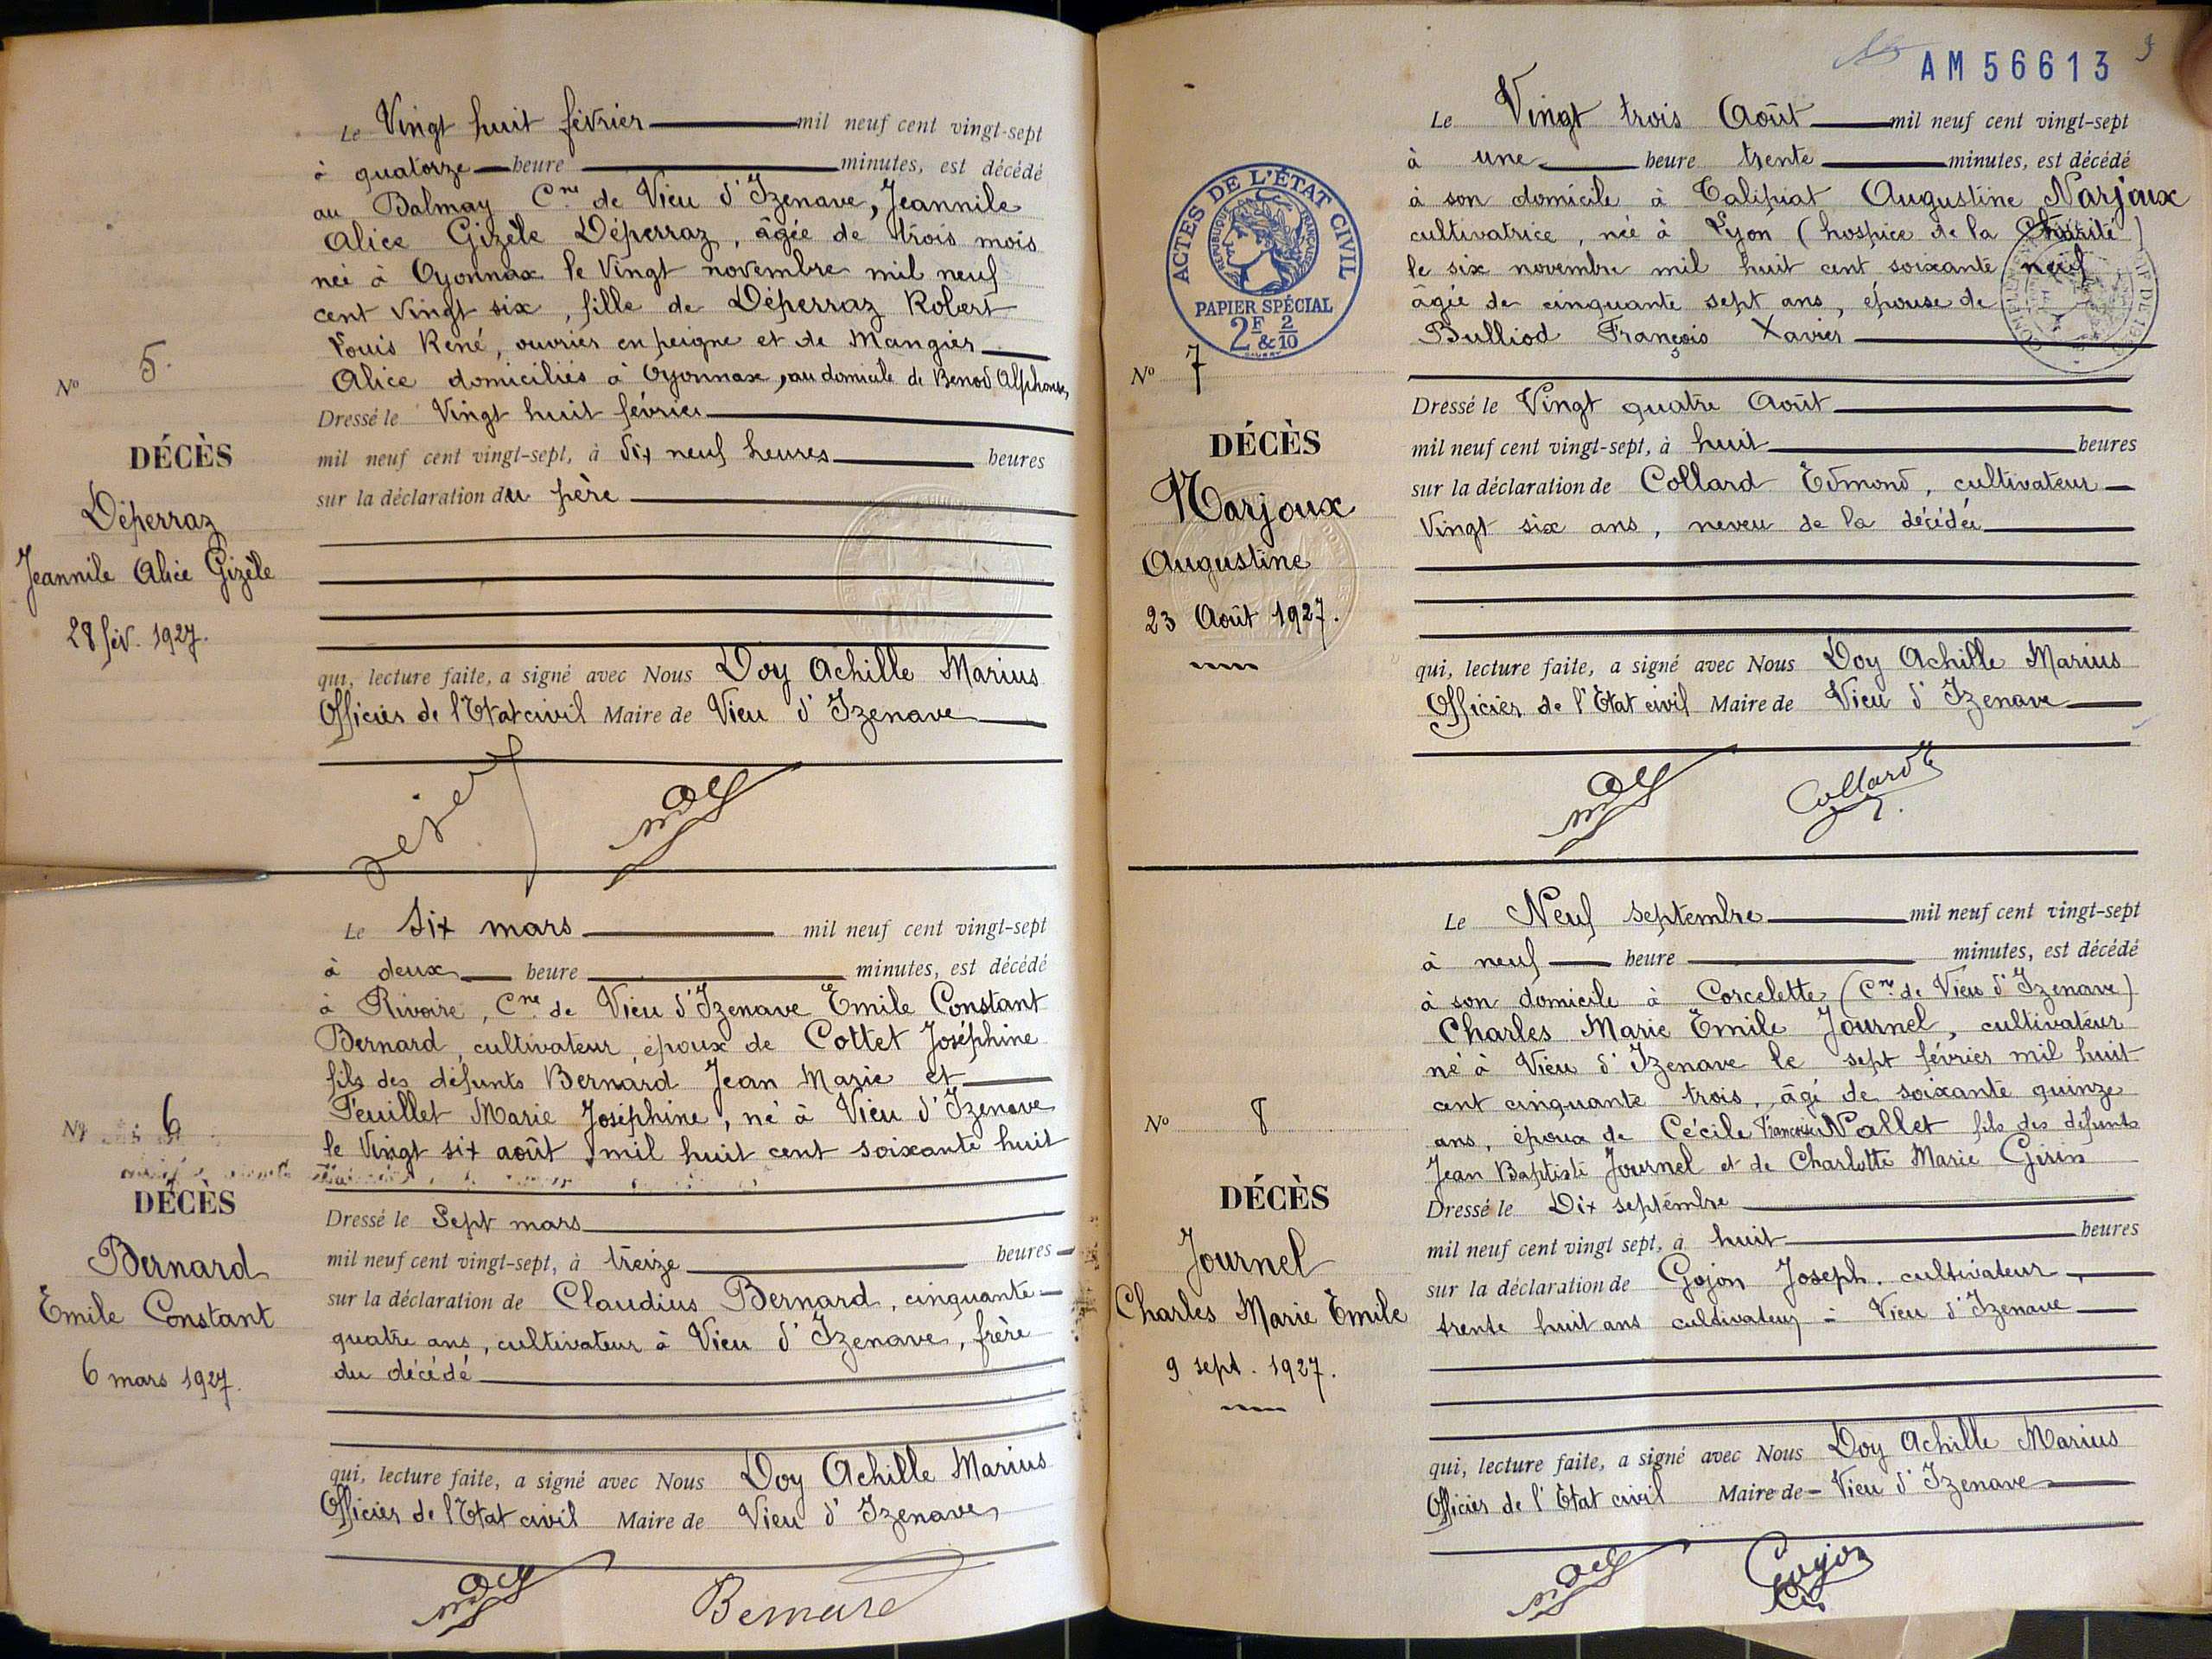 Le Vingt huit février mil neuf cent vingt-sept
à quatorze heure minutes, est décédé
au Balmay Cne de Vieu d'Izenave, Jeannile
Alice Gizèle Déperraz, âgée de trois mois
née à Oyonnax le Vingt novembre mil neuf
cent vingt six, fille de Déperraz Robert
Louis René, ouvrier en peigne et de Mangier
Alice domiciliés à Oyonnax, au domicile de Benod Alphonse,
No 5.
DÉCÈS
Déperraz
Jeannile Alice Gizèle
28 fév. 1927.
Dressé le Vingt huit février
mil neuf cent vingt-sept, à dix neuf heures heures
sur la déclaration du père
qui, lecture faite, a signé avec Nous Doy Achille Marius
Officier de l'Etat civil Maire de Vieu d'Izenave
Le Six mars mil neuf cent vingt-sept
à deux heure minutes, est décédé
à Rivoire, Cne de Vieu d'Izenave Emile Constant
Bernard, cultivateur, époux de Cottet Joséphine
fils des défunts Bernard Jean Marie et
Feuillet Marie Joséphine, né à Vieu d'Izenave
le Vingt six août mil huit cent soixante huit
No 6
DÉCÈS
Bernard
Emile Constant
6 mars 1927.
Dressé le Sept mars
mil neuf cent vingt-sept, à treize heures
sur la déclaration de Claudius Bernard, cinquante
quatre ans, cultivateur à Vieu d'Izenave, frère
du décédé
qui, lecture faite, a signé avec Nous Doy Achille Marius
Officier de l'Etat civil Maire de Vieu d'Izenave,
Bernard
AM 56613
ACTES DE L'ÉTAT CIVIL
RÉPUBLIQUE FRANÇAISE
PAPIER SPÉCIAL
2F & 2/10
Le Vingt trois Août mil neuf cent vingt-sept
à une heure trente minutes, est décédé
à son domicile à Talipiat Augustine Narjoux
cultivatrice, née à Lyon (hospice de la Charité)
le six novembre mil huit cent soixante neuf
âgée de cinquante sept ans, épouse de
Bulliod François Xavier
No 7
DÉCÈS
Narjoux
Augustine
23 Août 1927.
Dressé le Vingt quatre Août
mil neuf cent vingt-sept, à huit heures
sur la déclaration de Collard Edmond, cultivateur
Vingt six ans, neveu de la décédée
qui, lecture faite, a signé avec Nous Doy Achille Marius
Officier de l'Etat civil Maire de Vieu d'Izenave
Collard
Le Neuf septembre mil neuf cent vingt-sept
à neuf heure minutes, est décédé
à son domicile à Corcelette (Cne de Vieu d'Izenave)
Charles Marie Emile Journel, cultivateur
né à Vieu d'Izenave le sept février mil huit
cent cinquante trois, âgé de soixante quinze
ans, époux de Cécile Françoise Nallet fils des défunts
Jean Baptiste Journel et de Charlotte Marie Girin
No 8
DÉCÈS
Journel
Charles Marie Emile
9 sept. 1927.
Dressé le Dix septembre
mil neuf cent vingt sept, à huit heures
sur la déclaration de Gojon Joseph. cultivateur,
trente huit ans cultivateur à Vieu d'Izenave
qui, lecture faite, a signé avec Nous Doy Achille Marius
Officier de l'Etat civil Maire de Vieu d'Izenave
Gojon